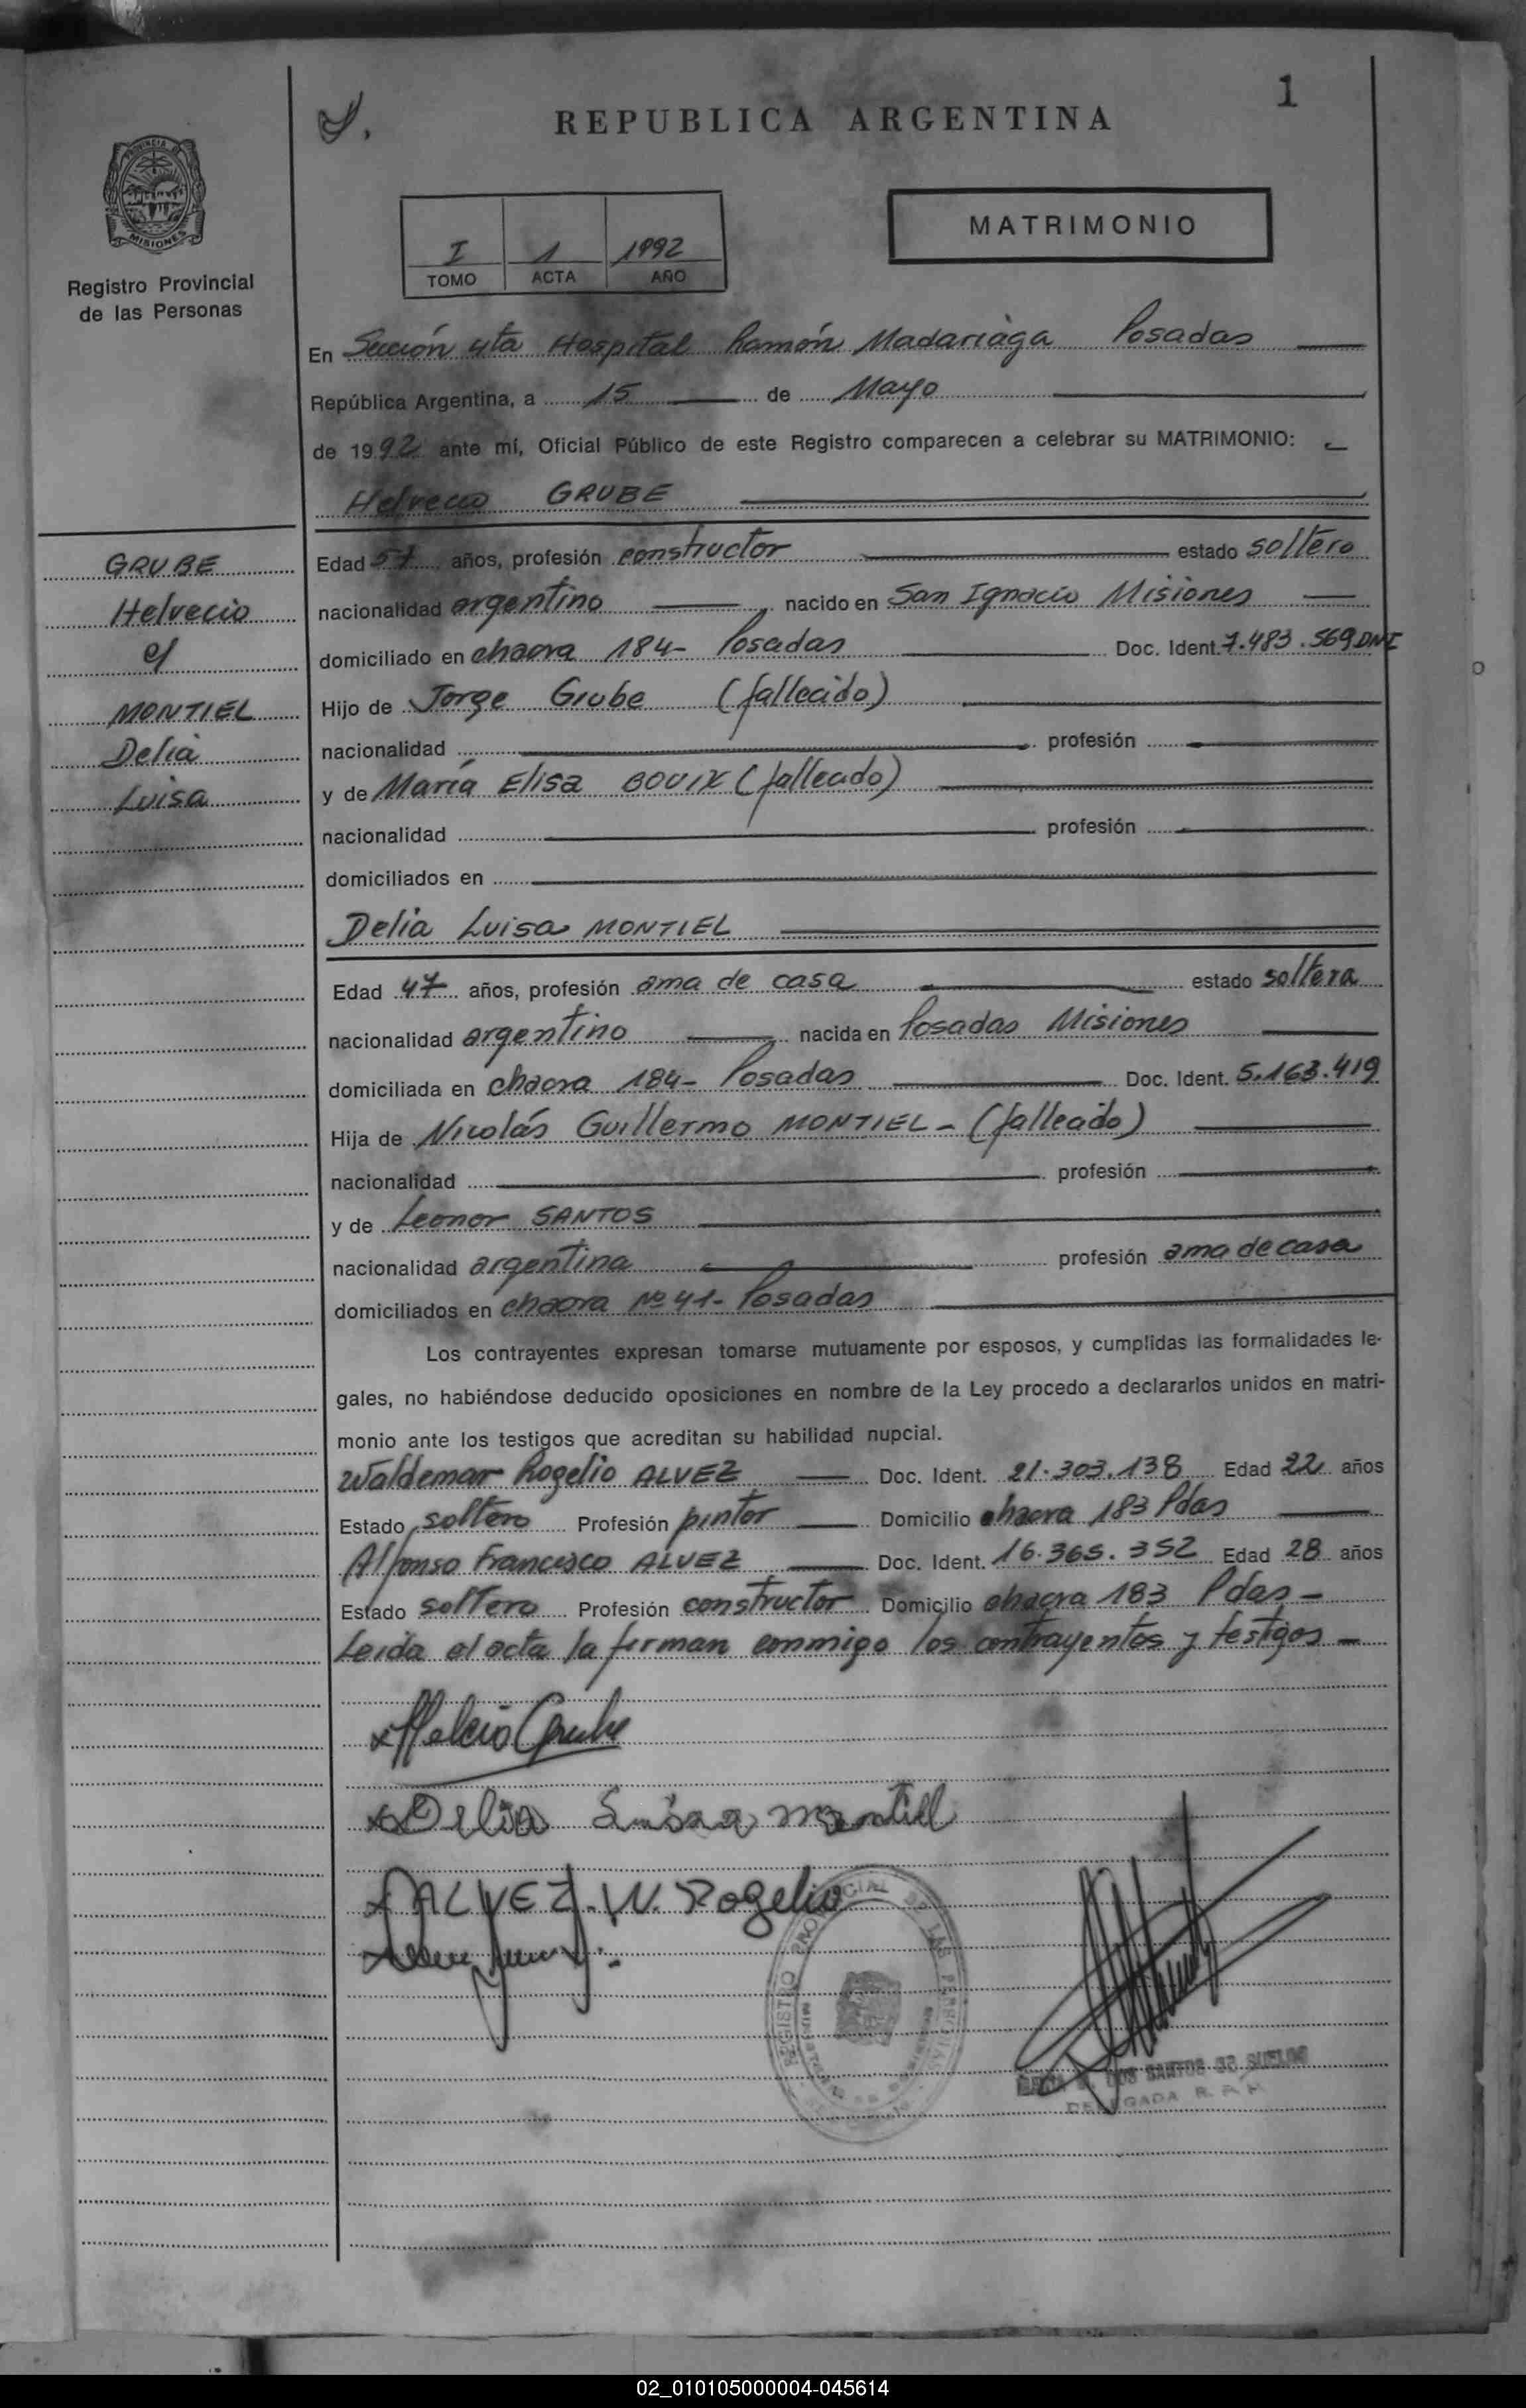 1
REPUBLICA ARGENTINA
PROVINCIA DE
MISIONES
Registro Provincial
de las Personas
I 1 1992
TOMO ACTA AÑO
MATRIMONIO
En Sección 4ta Hospital Ramón Madariaga Posadas
República Argentina, a 15 de Mayo
de 1992 ante mí, Oficial Público de este Registro comparecen a celebrar su MATRIMONIO:
Helvecio GRUBE
GRUBE
Helvecio
c/
MONTIEL
Delia
Luisa
Edad 57 años, profesión constructor estado soltero
nacionalidad argentino nacido en San Ignacio Misiones
domiciliado en chacra 184- Posadas Doc. Ident. 7.483.569 DNI
Hijo de Jorge Grube (fallecido)
nacionalidad profesión
y de María Elisa BOUIX (fallecido)
nacionalidad profesión
domiciliados en
Delia Luisa MONTIEL
Edad 47 años, profesión ama de casa estado soltera
nacionalidad argentino nacida en Posadas Misiones
domiciliada en chacra 184- Posadas Doc. Ident. 5.163.419
Hija de Nicolás Guillermo MONTIEL- (fallecido)
nacionalidad profesión
y de Leonor SANTOS
nacionalidad argentina profesión ama de casa
domiciliados en chacra Nº 41- Posadas
Los contrayentes expresan tomarse mutuamente por esposos, y cumplidas las formalidades le-
gales, no habiéndose deducido oposiciones en nombre de la Ley procedo a declararlos unidos en matri-
monio ante los testigos que acreditan su habilidad nupcial.
Waldemar Rogelio ALVEZ Doc. Ident. 21.303.138 Edad 22 años
Estado soltero Profesión pintor Domicilio chacra 183 Pdas
Alfonso Francisco ALVEZ Doc. Ident. 16.365.352 Edad 28 años
Estado soltero Profesión constructor Domicilio chacra 183 Pdas-
Leida el acta la firman conmigo los contrayentes y testigos-
x Helecio Grube
x Delia Luisa Montiel
x ALVEZ. W. Rogelio
REGISTRO PROVINCIAL DE LAS PERSONAS
DOS SANTOS DE SUELOS
DELEGADA R. P. P.
02_010105000004-045614